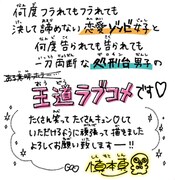 何度フラれてもフラれても
決して諦めない恋愛ゾンビ女子と
何度告られても告られても
一刀両断な処刑台男子の
王道ラブコメです♡
たくさん笑ってたくさんキュン♡して
いただけるように頑張って描きました
よろしくお願い致します―!!